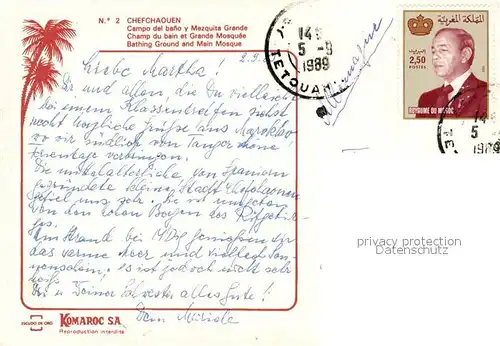 N.º 2 CHEFCHAOUEN
Campo del baño y Mezquita Grande
Champ du bain et Grande Mosquée
Bathing Ground and Main Mosque
2.9.
Liebe Martha!
Dir und allen, die Du vielleicht
bei einem Klassentreffen siehst
recht herzliche Grüße aus Marokko
wo wir südlich von Tanger schöne
Ferientage verbringen.
Die mittelalterliche von Spaniern
gegründete schöne Stadt Chefchaouen
gefiel uns sehr. Sie ist umgeben
von den roten Bergen des Rifgebir-
ges.
Am Strand bei genießen wir
das warme Meer und viel
es ist jedoch nicht sehr
heiß.
Dir u. Deiner Schwester alles Gute!
Dein
14
5-9
1989
TETOUAN
Allemagne
المملكة المغربية
البريد
2,50
POSTES
ROYAUME DU MAROC
14
5
1989
privacy protection
www.ansichtskarten-center.de
ESCUDO DE ORO
KOMAROC S.A.
Reproduction interdite